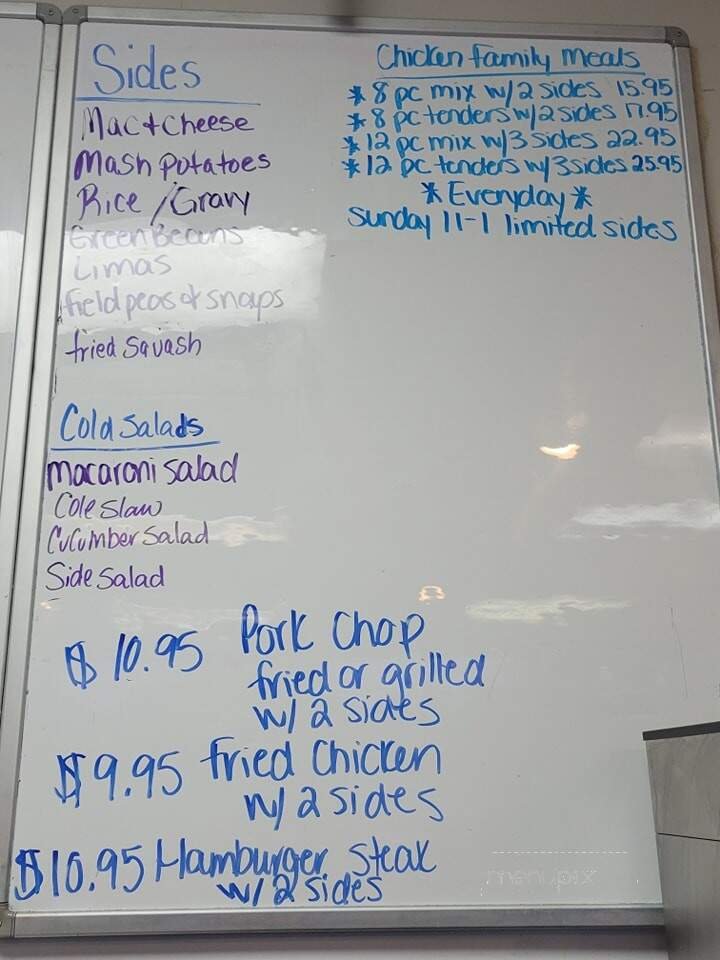 Sides
Mac+Cheese
Mash Potatoes
Rice / Gravy
Green Beans
Limas
field peas & snaps
fried Squash
Cold Salads
Macaroni Salad
Cole Slaw
Cucumber Salad
Side Salad
Chicken Family Meals
* 8 pc mix w/ 2 sides 15.95
* 8 pc tenders w/ 2 sides 17.95
* 12 pc mix w/ 3 sides 22.95
* 12 pc tenders w/ 3 sides 25.95
* Everyday *
Sunday 11-1 limited sides
$ 10.95 Pork Chop
fried or grilled
w/ 2 sides
$9.95 fried Chicken
w/ 2 sides
$10.95 Hamburger Steak
w/ 2 sides
menupix